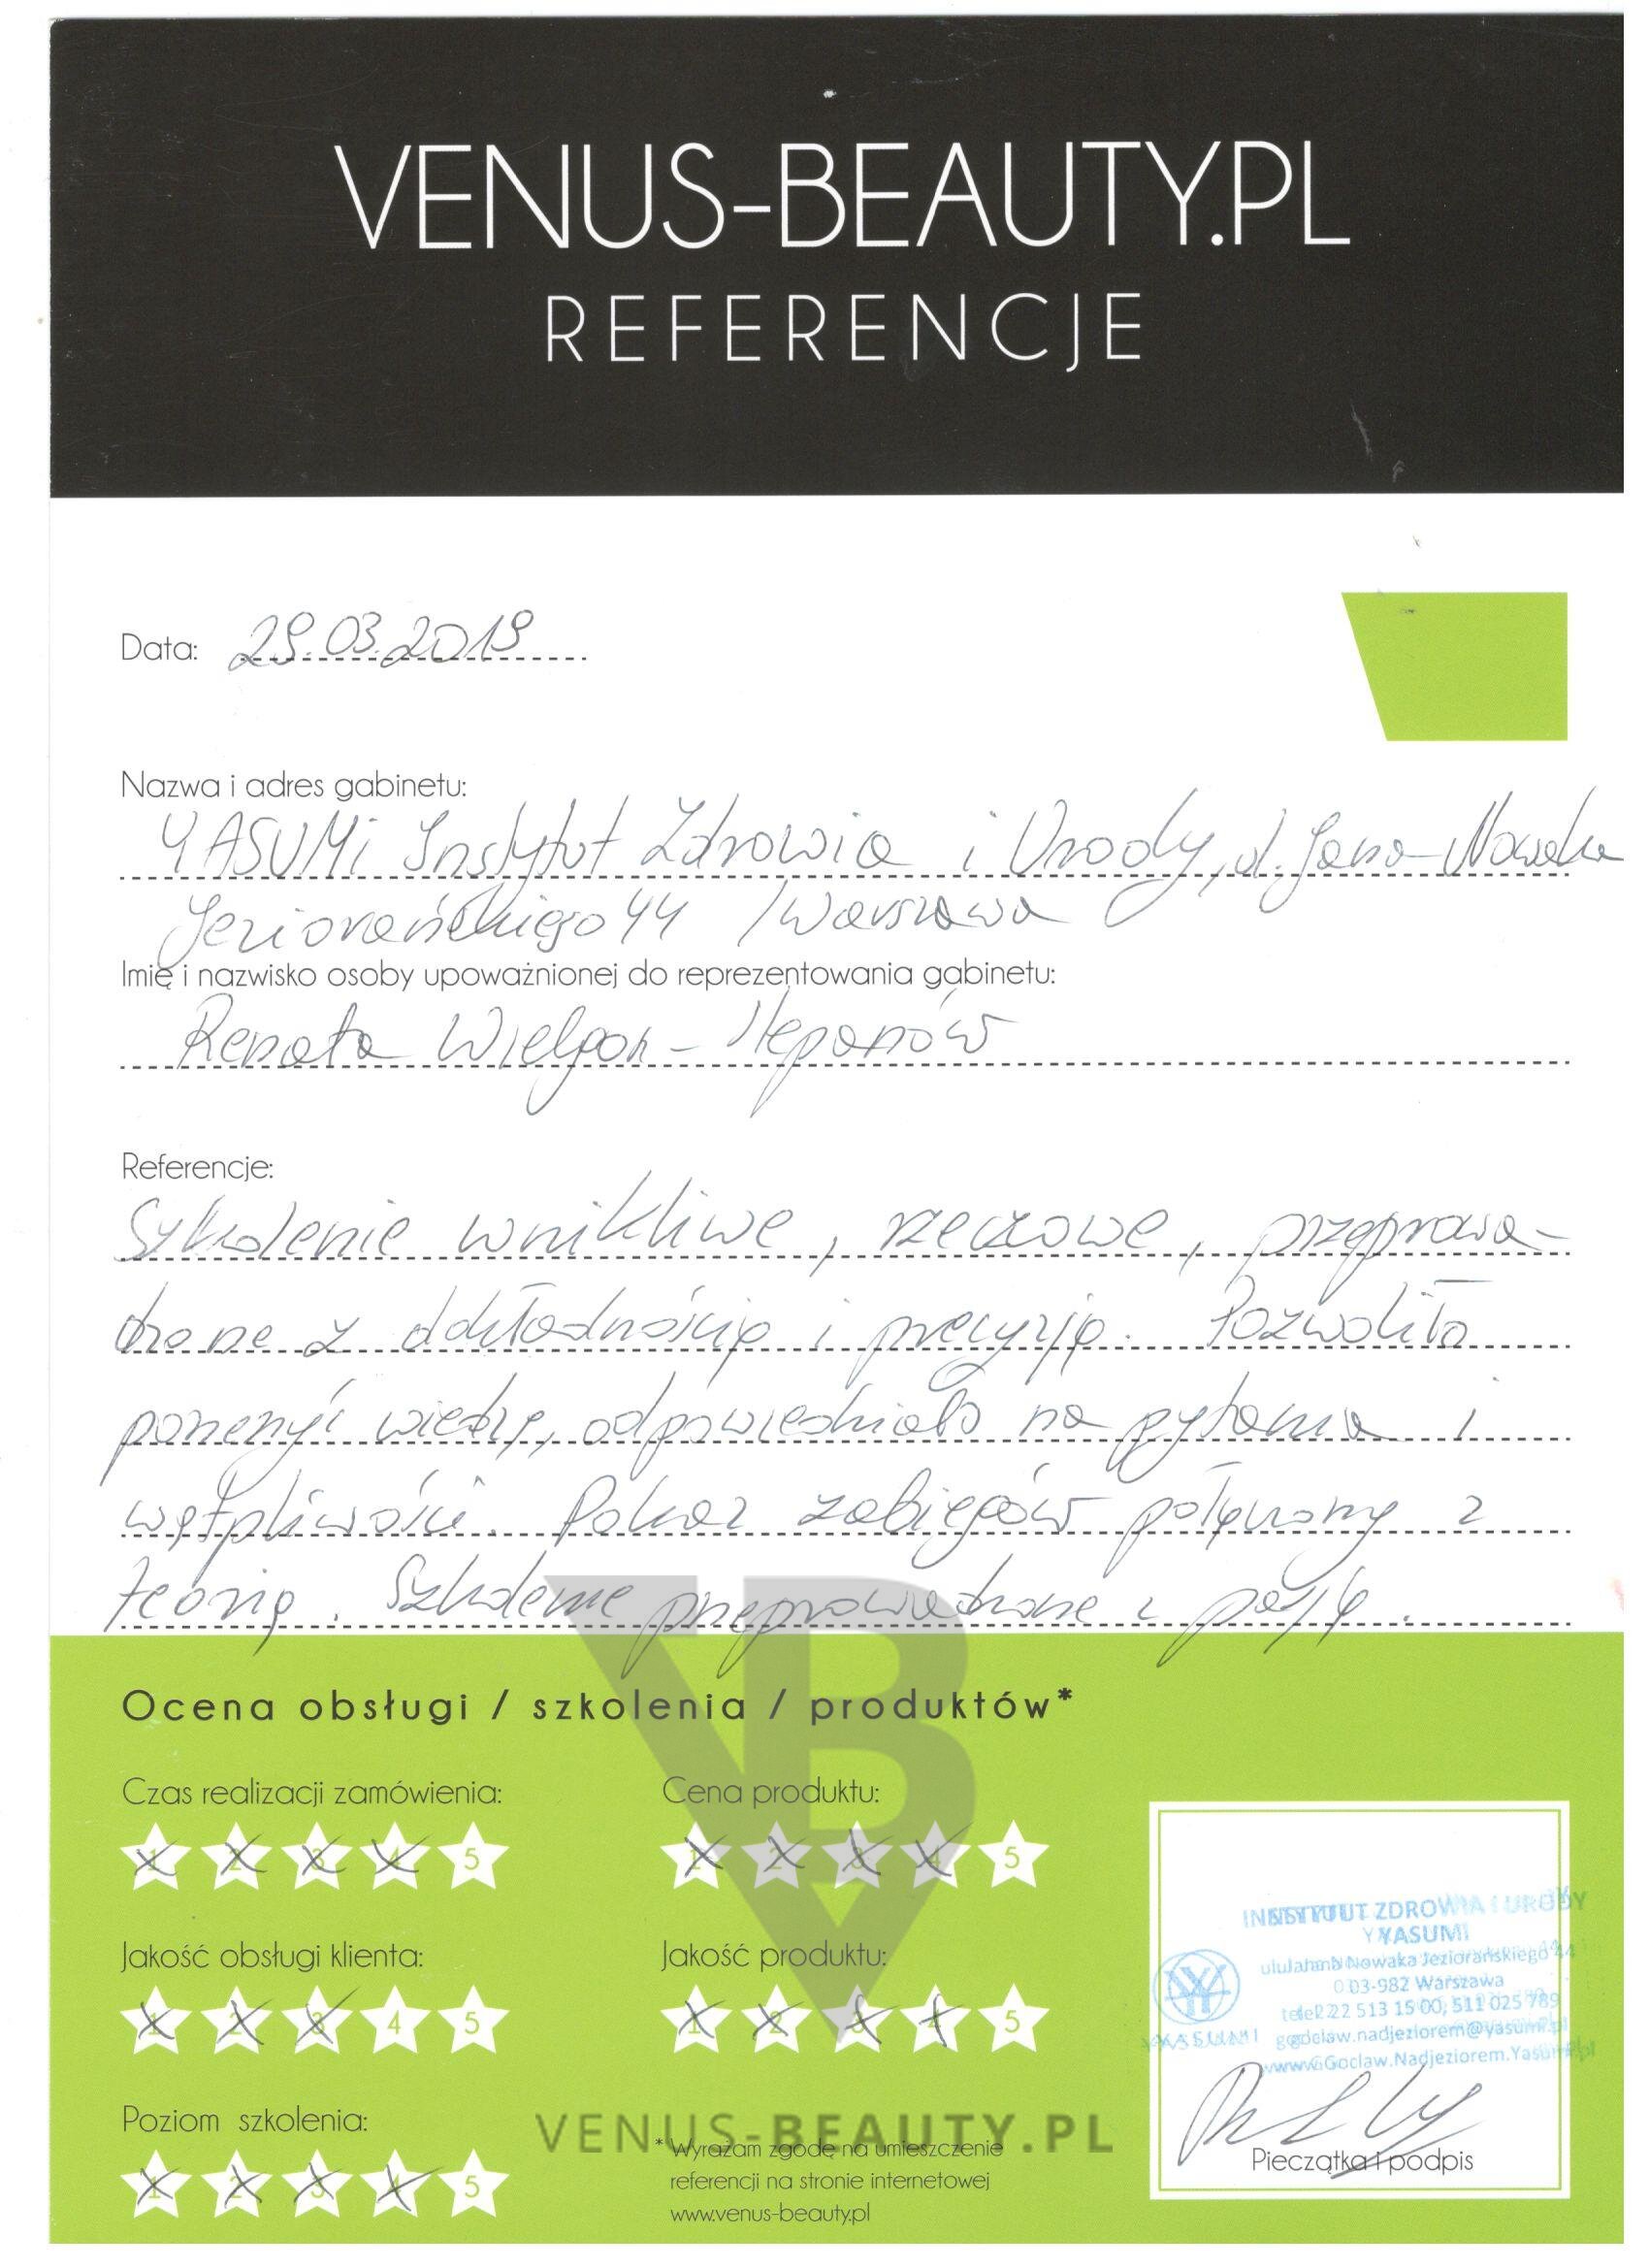 VENUS-BEAUTY.PL
REFERENCJE
Data: 29.03.2019
Nazwa i adres gabinetu:
YASUMi Instytut Zdrowia i Urody, ul. Jana Nowaka
Jeziorańskiego 44 / Warszawa
Imię i nazwisko osoby upoważnionej do reprezentowania gabinetu:
Renata
Referencje:
Szkolenie wnikliwe, rzeczowe, przeprowa-
dzone z dokładnością i precyzją. Pozwoliło
poszerzyć wiedzę, odpowiedziało na pytania i
wątpliwości. Pokaz zabiegów połączony z
teorią. Szkolenie przeprowadzone z pasją.
Ocena obsługi / szkolenia / produktów*
Czas realizacji zamówienia:
1 2 3 4 5
Cena produktu:
1 2 3 4 5
Jakość obsługi klienta:
1 2 3 4 5
Jakość produktu:
1 2 3 4 5
Poziom szkolenia:
1 2 3 4 5
VENUS-BEAUTY.PL
* Wyrażam zgodę na umieszczenie
referencji na stronie internetowej
www.venus-beauty.pl
INSTYTUT ZDROWIA I URODY
YASUMI
ul. Jana Nowaka Jeziorańskiego 44
03-982 Warszawa
tel. 22 513 15 00, 511 025 789
goclaw.nadjeziorem@yasumi.pl
www.Goclaw.Nadjeziorem.Yasumi.pl
YASUMI
Pieczątka i podpis